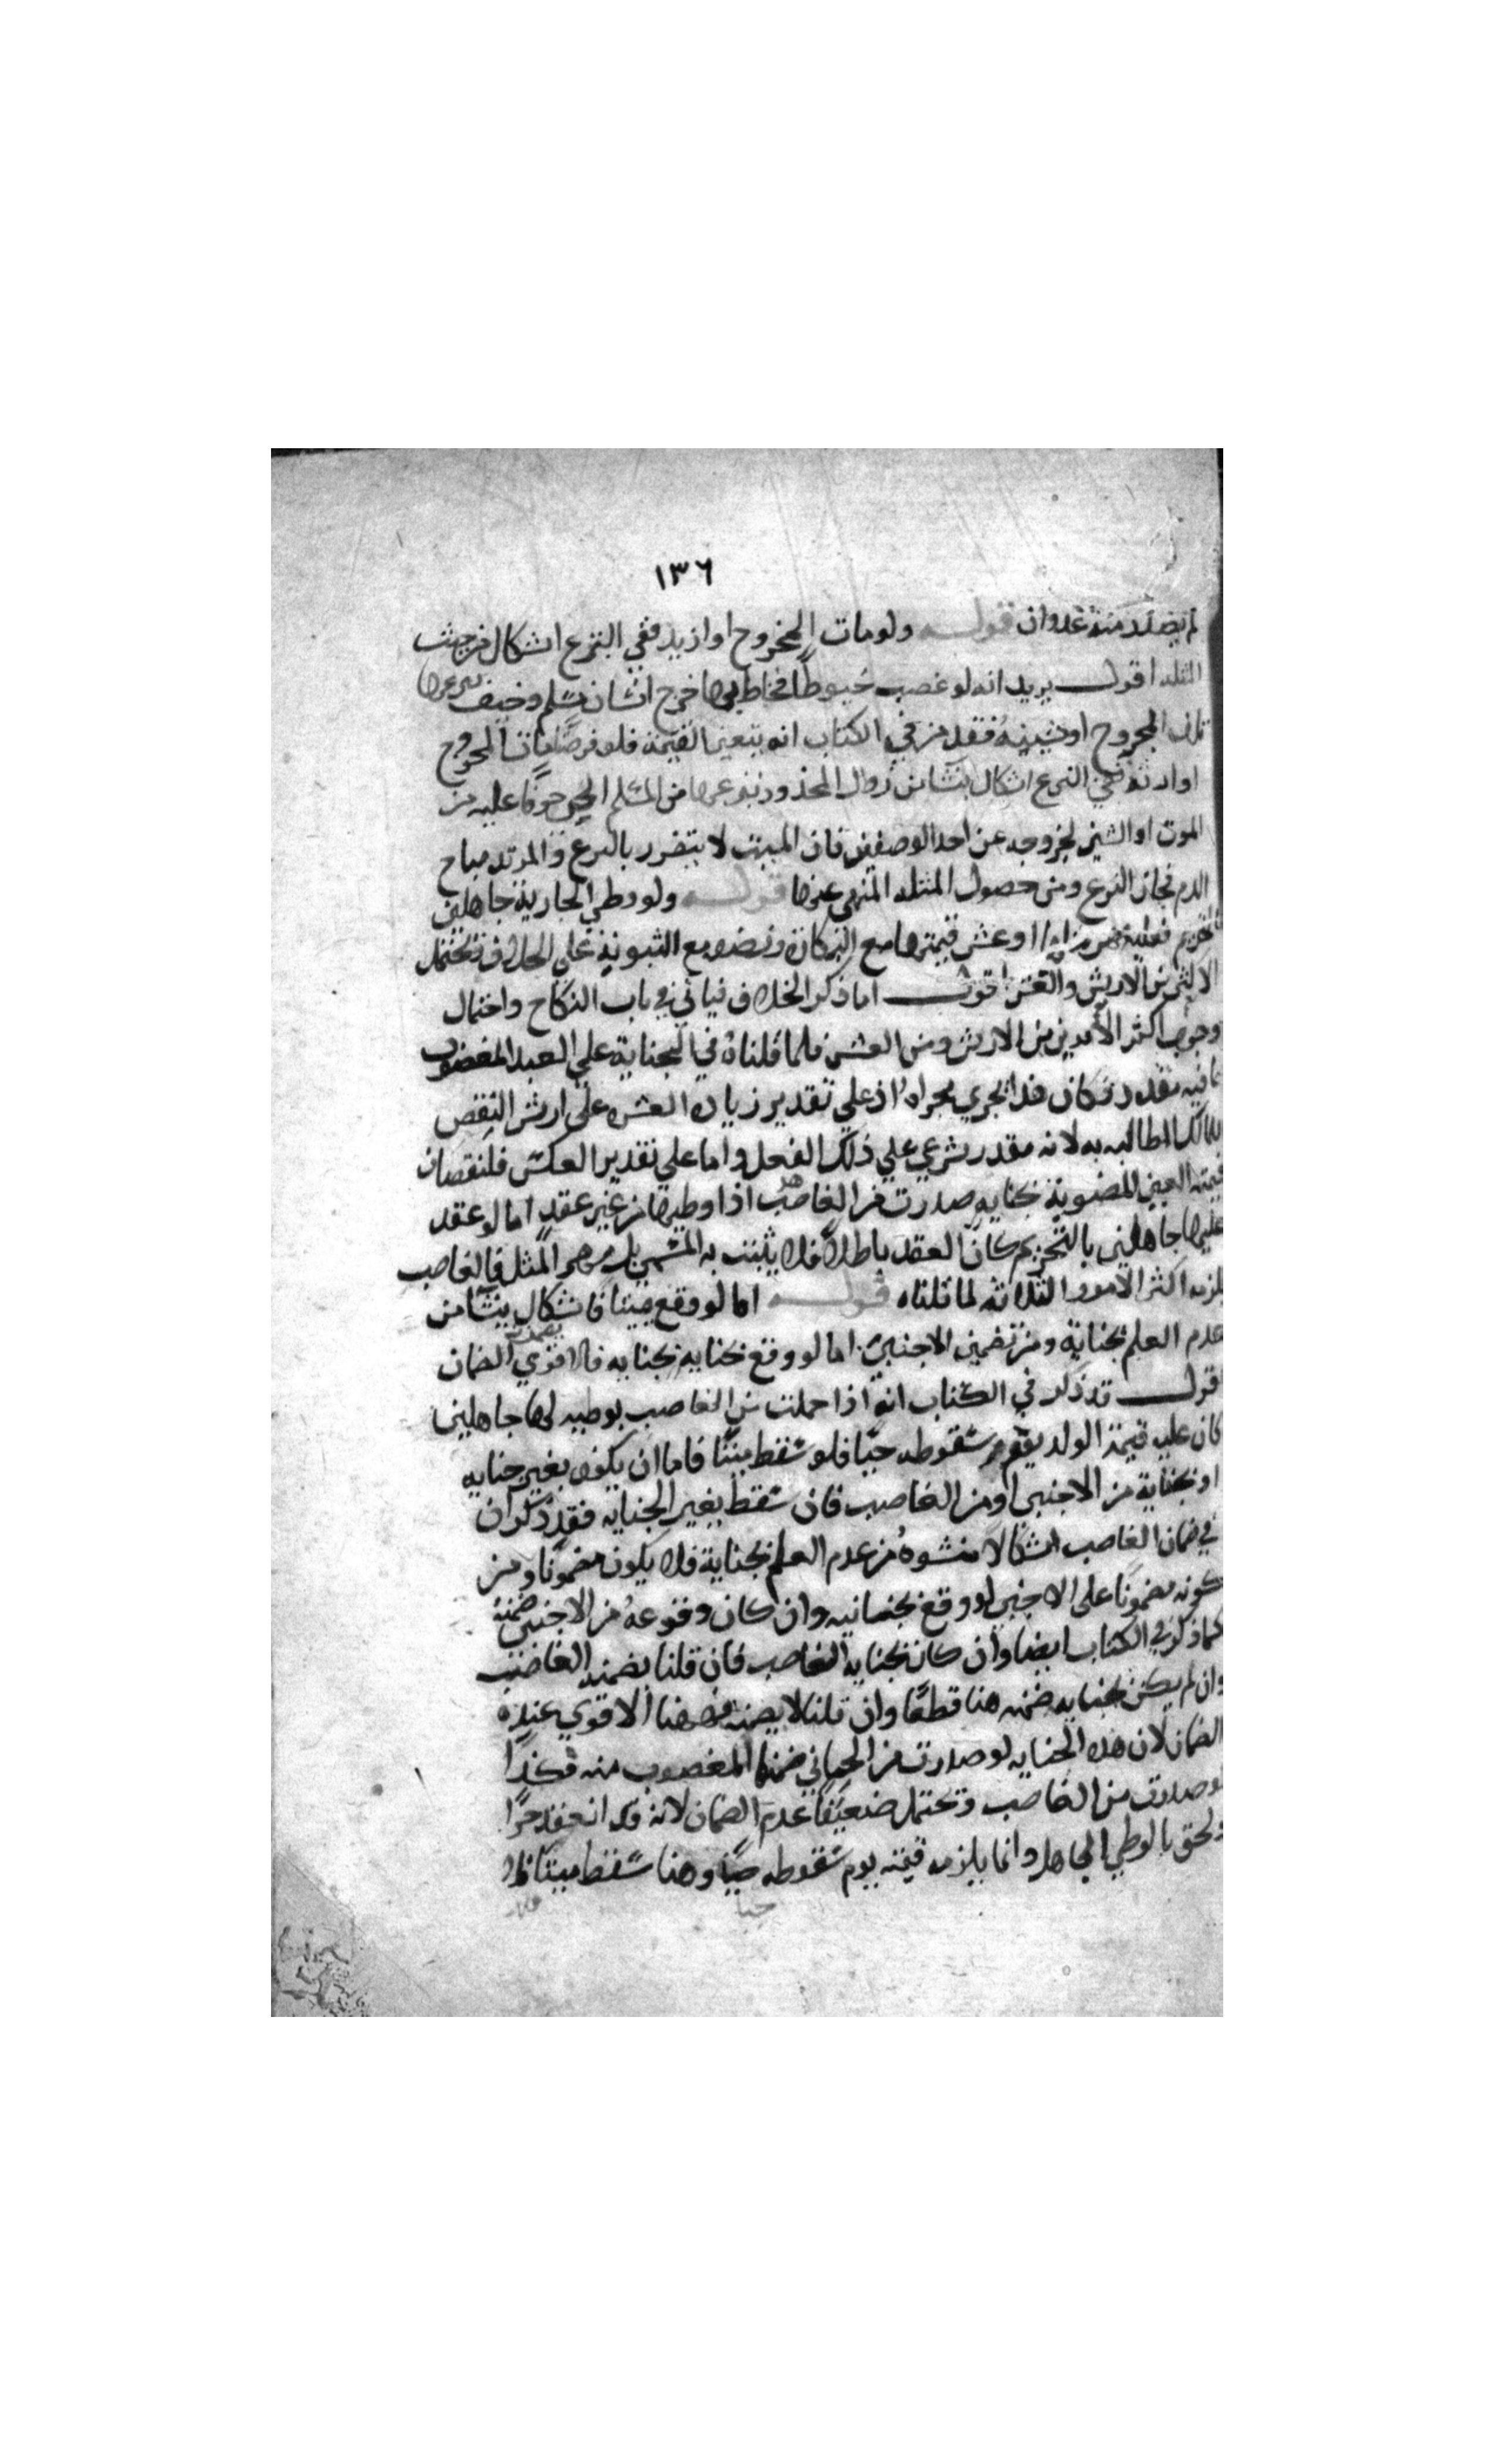 ١٣٦
لم يصدر منه عدوان قوله ولو مات المجروح او ارتد ففي النزع اشكال من حيث
المثله اقول يريد انه لو غصب خيوطا فخاط بها جرح انسان مسلم وخيف بنزعها
تلف المجروح او شينه فقد مر في الكتاب انه يتعين القيمة فلو فرض مات المجروح
او ارتد ففي النزع اشكال ينشا من زوال المحذور بنزعها من المسلم الحي خوفا عليه من
الموت او الشين لخروجه عن احد الوصفين فان الميت لا يتضرر بالنزع والمرتد مباح
الدم فجاز النزع ومن حصول المثله المنهي عنها قوله ولو وطي الجارية جاهلين
بالتحريم فعليه مهر مثلها او عشر قيمتها مع البكارة ونصفه مع الثيوبة على الخلاف وتحتمل
الاكثر من الارش والعشر اقول اما ذكر الخلاف فياتي في باب النكاح واحتمال
وجوب اكثر الامرين من الارش ومن العشر فلما قلناه في الجناية على العبد المغصوب
بما فيه مقدر فكان هذا يجري مجراه اذ على تقدير زيادة العشر على ارش النقص
للمالك المطالبه به لانه مقدر شرعي على ذلك الفعل واما على تقدير العكس فلنقصان
قيمة العين المضمونة بجنايه صدرت من الغاصب هذا اذا وطيها من غير عقد اما لو عقد
عليها جاهلين بالتحريم كان العقد باطلا فلا يثبت به المسمى بل مهر المثل فالغاصب
يلزمه اكثر الامور الثلاثه لما قلناه قوله اما لو وقع ميتا فاشكال ينشا من
عدم العلم بحياته ومن تضمين الاجنبي اما لو وقع بجنايه فالاقوي الضمان
اقول قد ذكر في الكتاب انه اذا حملت من الغاصب بوطيه لها جاهلين
كان عليه قيمة الولد يوم سقوطه حيا فلو سقط ميتا فاما ان يكون بغير جنايه
او بجناية من الاجنبي او من الغاصب فان سقط بغير الجنايه فقد ذكر ان
في ضمان الغاصب اشكالا منشوه من عدم العلم بحياته فلا يكون مضمونا ومن
كونه مضمونا على الاجنبي لو وقع بجنايته وان كان وقوعه من الاجنبي ضمنه
كما ذكر في الكتاب ايضا وان كان بجنايه الغاصب فان قلنا بضمنه الغاصب
وان لم يكن بجنايه ضمنه هنا قطعا وان قلنا لا يضمنه فههنا الاقوي عنده
الضمان لان هذه الجنايه لو صدرت من الجاني ضمنها المغصوب منه فكذا
لو صدرت من الغاصب وتحتمل ضعيفا عدم الضمان لانه قد انعقد حرا
ولحق بالوطي الجاهل وانما يلزمه قيمته يوم سقوطه حيا وهنا سقط ميتا فلا